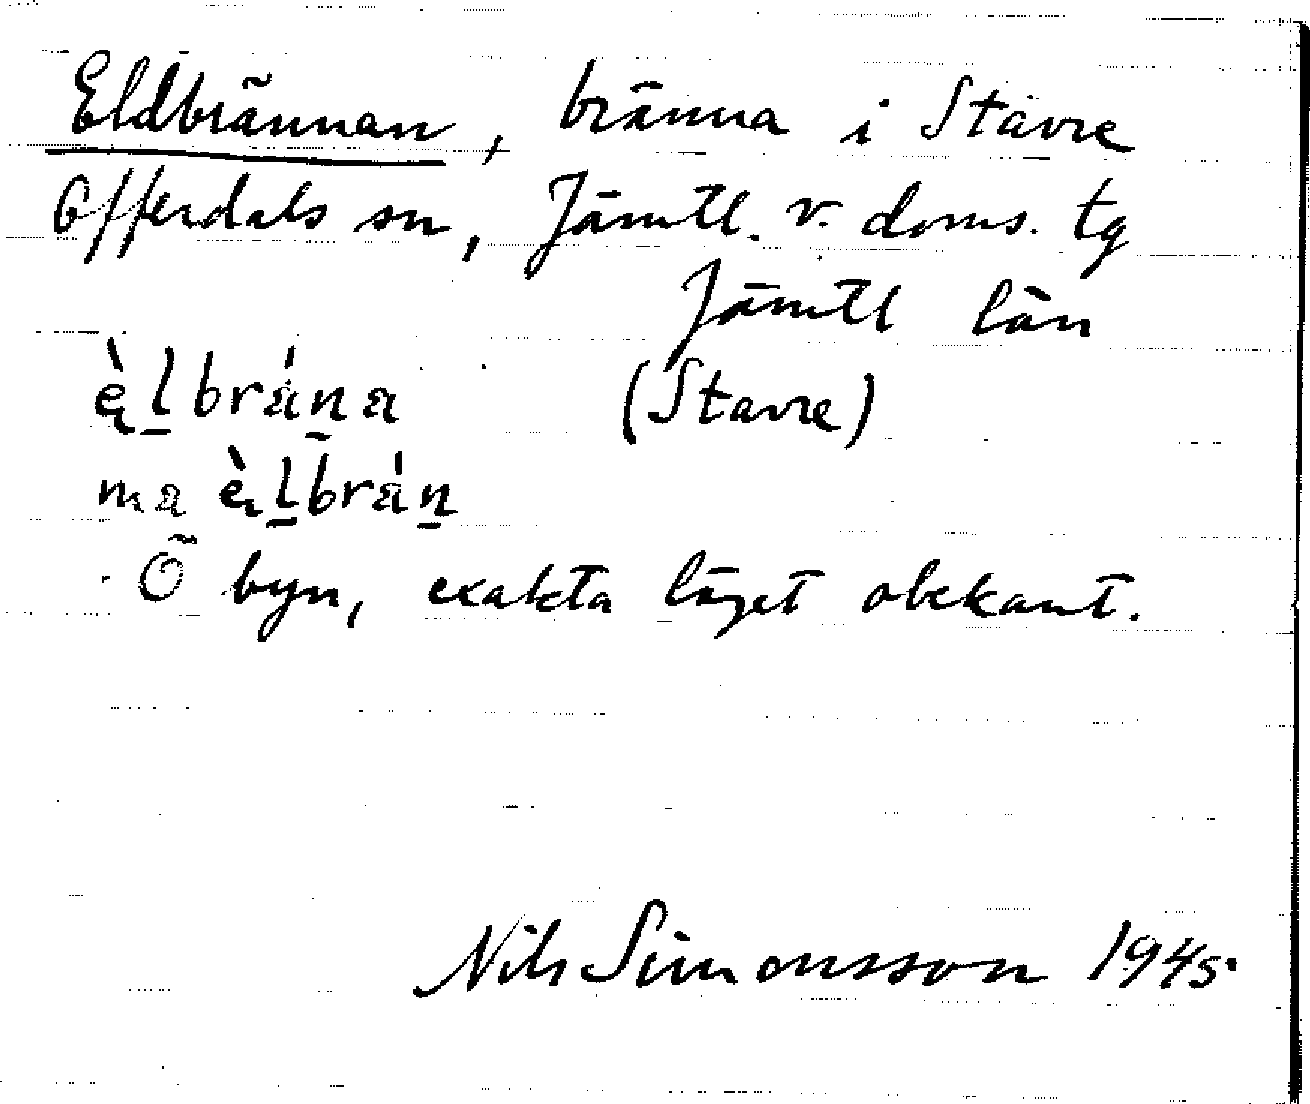 Eldbrännan, bränna i Stavre
Offerdals sn, Jämtl. v. doms. tg
Jämtl län
ę̀l̲brán̲a (Stavre)
ma ę̀l̲brán̲
Ö byn, exakta läget obekant.
Nils Simonsson 1945.